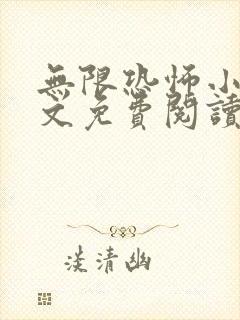 無限恐怖小
文免費閱讀
淡清幽